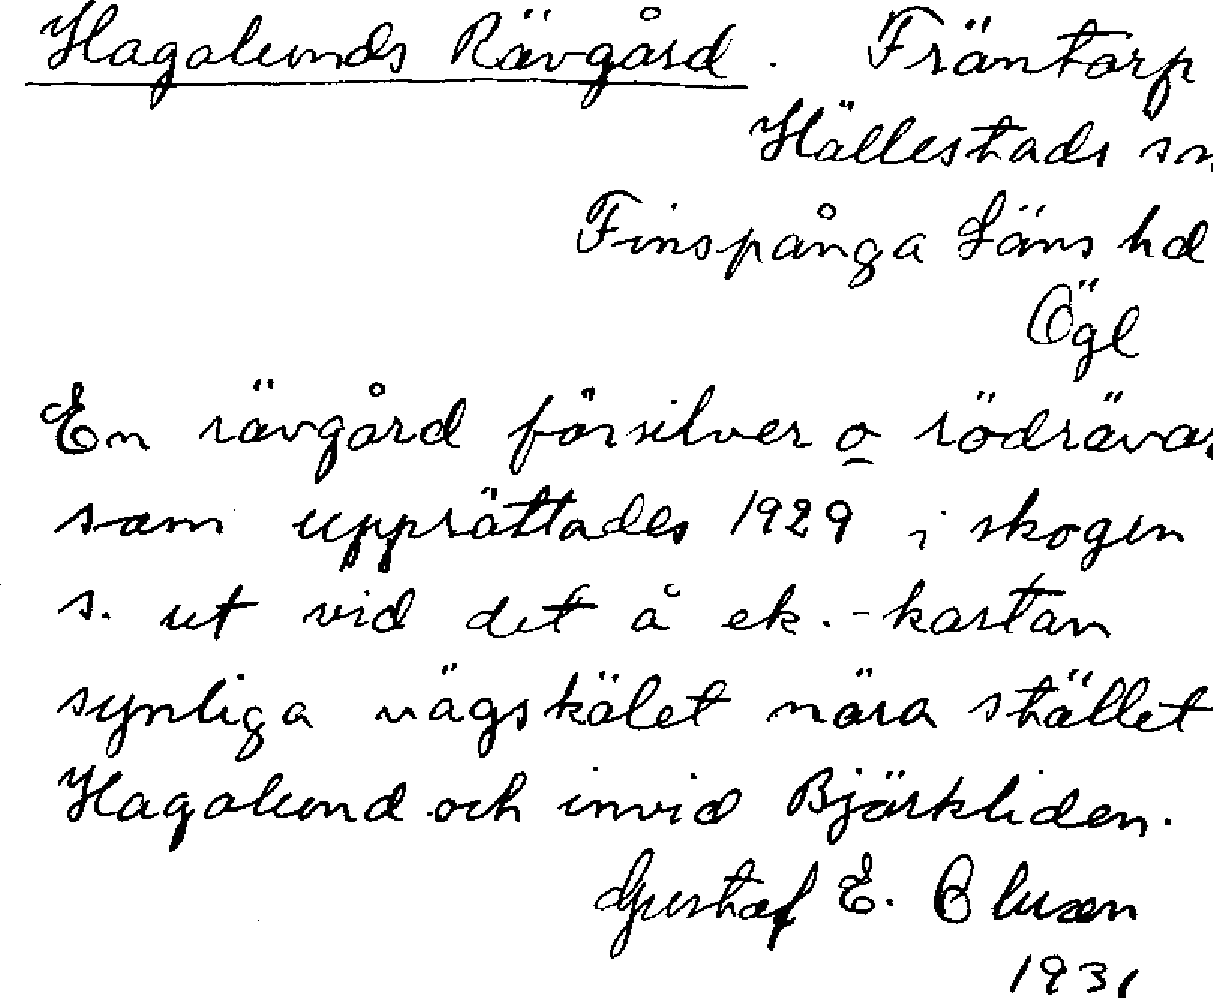 Hagalunds Rävgård. Fräntorp
Hällestads sn
Finspånga Läns hd
Ögl
En rävgård för silver o rödrävar
som upprättades 1929 i skogen
s. ut vid det å ek.-kartan
synliga vägskälet nära stället
Hagalund och invid Björkliden.
Gustaf E.
1931